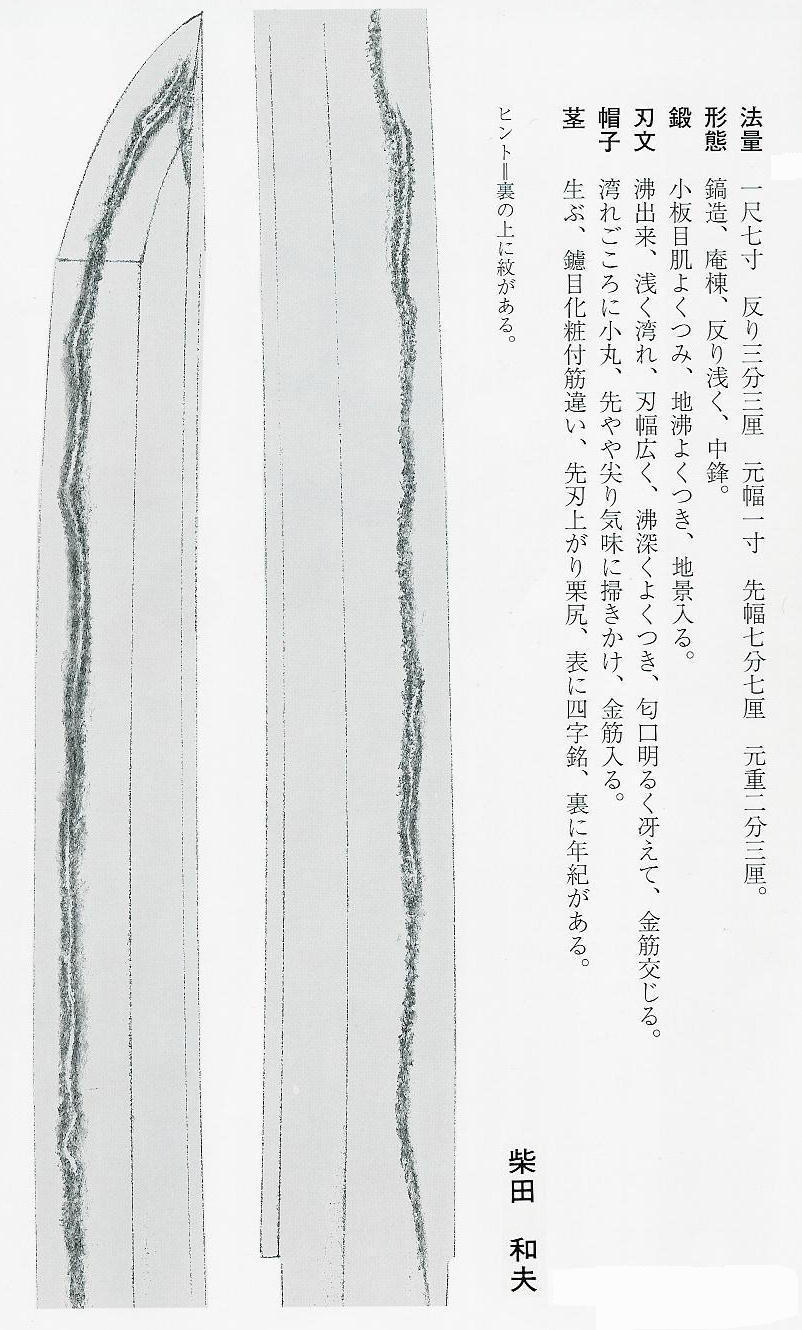 法量　一尺七寸　反り三分三厘　元幅一寸　先幅七分七厘　元重二分三厘。
形態　鎬造、庵棟、反り浅く、中鋒。
鍛　小板目肌よくつみ、地沸よくつき、地景入る。
刃文　沸出来、浅く湾れ、刃幅広く、沸深くよくつき、匂口明るく冴えて、金筋交じる。
帽子　湾れごころに小丸、先やや尖り気味に掃きかけ、金筋入る。
茎　生ぶ、鑢目化粧付筋違い、先刃上がり栗尻、表に四字銘、裏に年紀がある。
ヒント＝裏の上に紋がある。
柴田　和夫